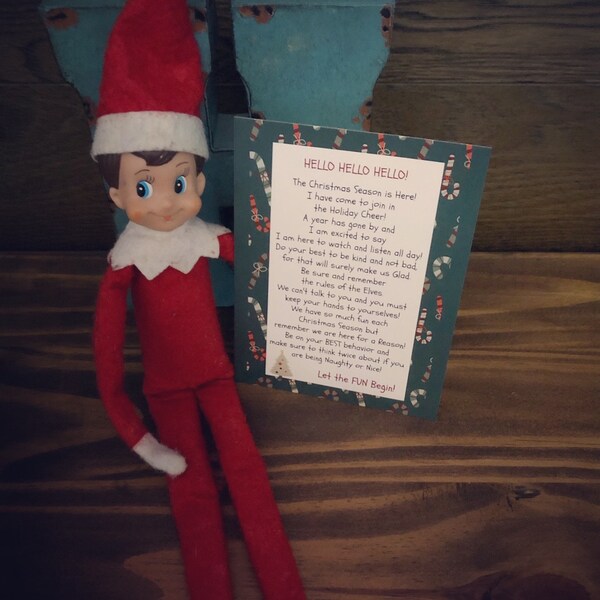 HELLO HELLO HELLO!
The Christmas Season is Here!
I have come to join in
the Holiday Cheer!
A year has gone by and
I am excited to say
I am here to watch and listen all day!
Do your best to be kind and not bad,
for that will surely make us Glad
Be sure and remember
the rules of the Elves
We can't talk to you and you must
keep your hands to yourselves!
We have so much fun each
Christmas Season but
remember we are here for a Reason!
Be on your BEST behavior and
make sure to think twice about if you
are being Naughty or Nice!
Let the FUN Begin!